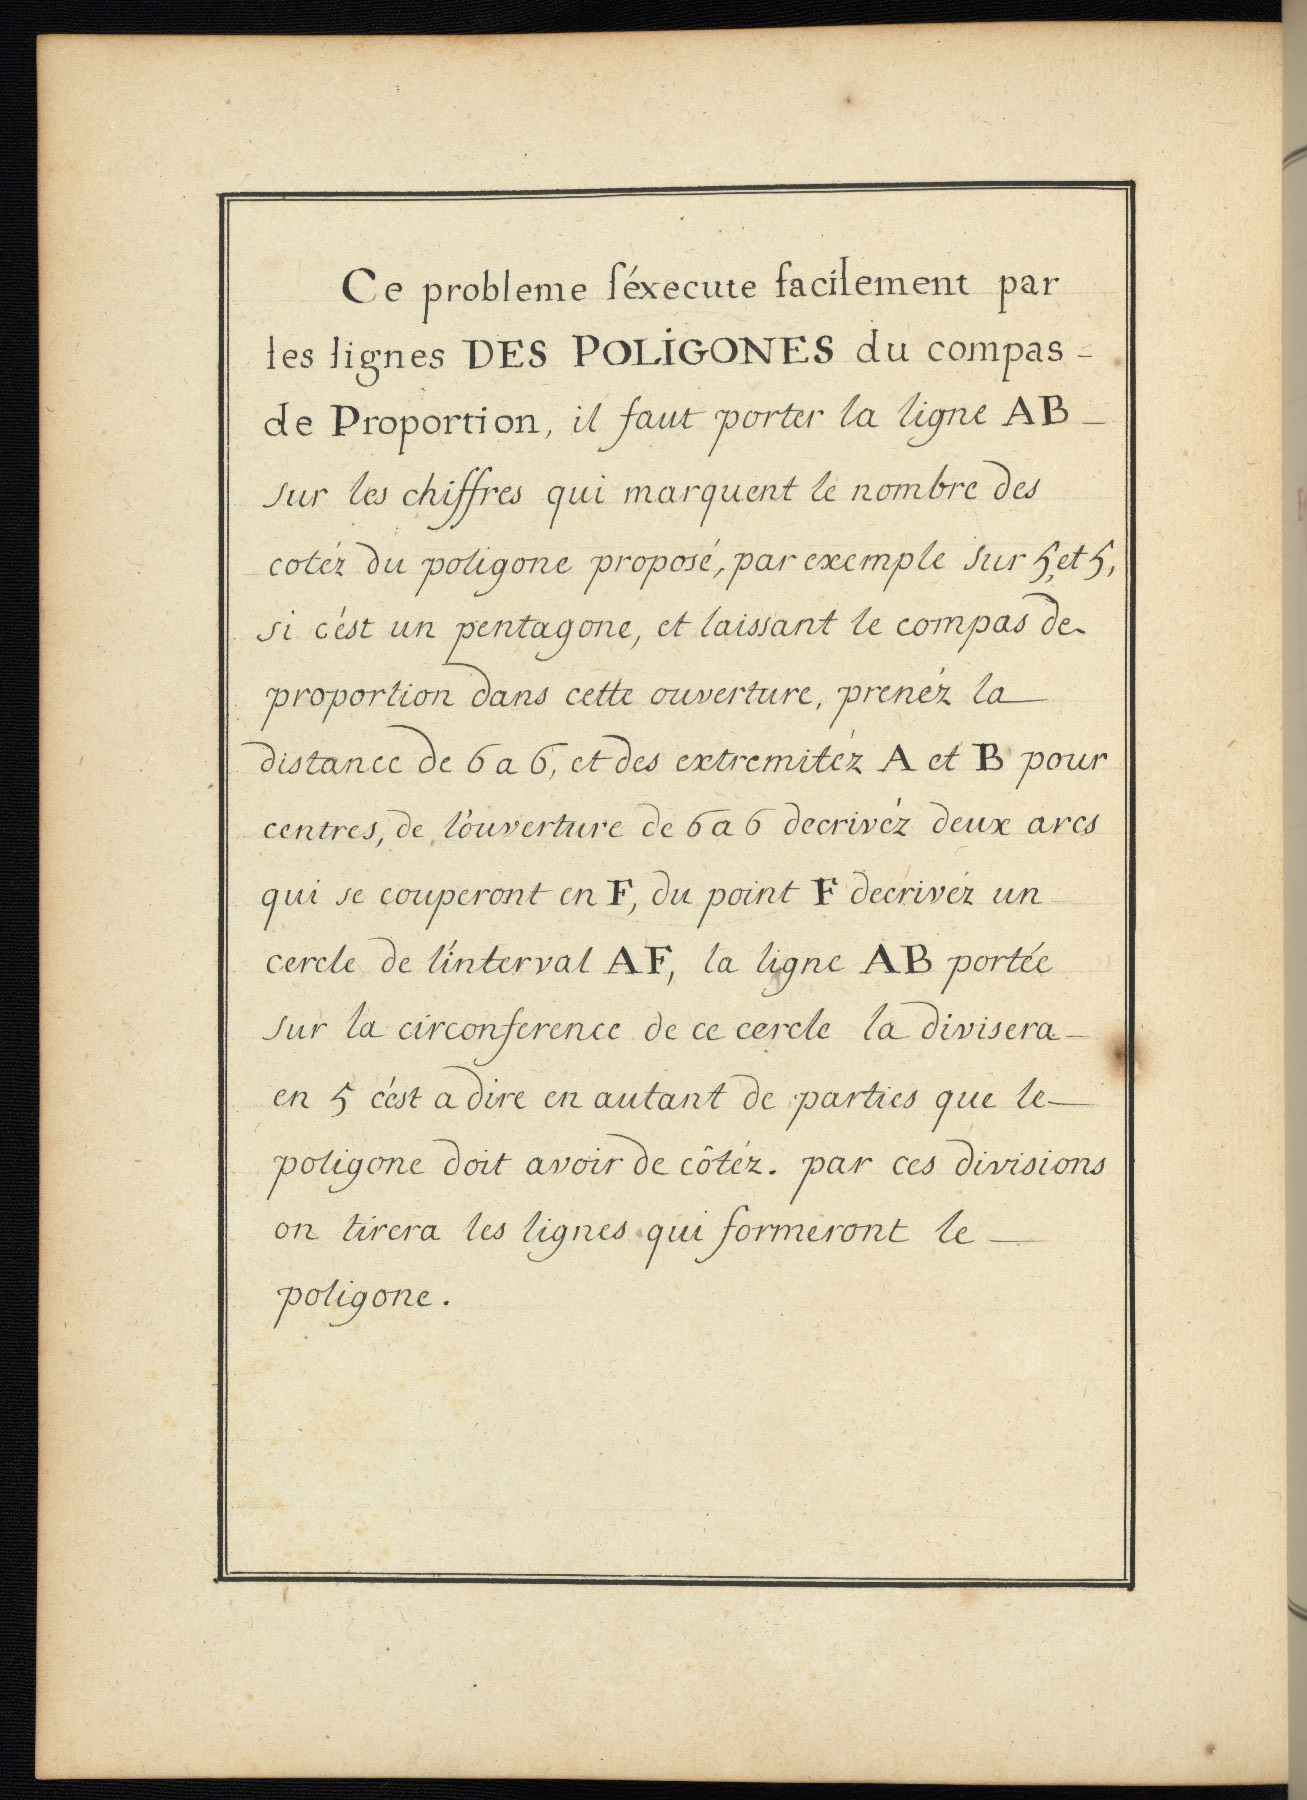 Ce probleme s'éxecute facilement par
les lignes DES POLIGONES du compas -
de Proportion, il faut porter la ligne AB -
sur les chiffres qui marquent le nombre des
cotéz du poligone proposé, par exemple sur 5, et 5,
si c'est un pentagone, et laissant le compas de
proportion dans cette ouverture, prenéz la
distance de 6 a 6, et des extremitéz A et B pour
centres, de l'ouverture de 6 a 6 decrivéz deux arcs
qui se couperont en F, du point F decrivéz un
cercle de l'interval AF, la ligne AB portée
sur la circonference de ce cercle la divisera -
en 5 c'est a dire en autant de parties que le -
poligone doit avoir de côtéz. par ces divisions
on tirera les lignes qui formeront le -
poligone.